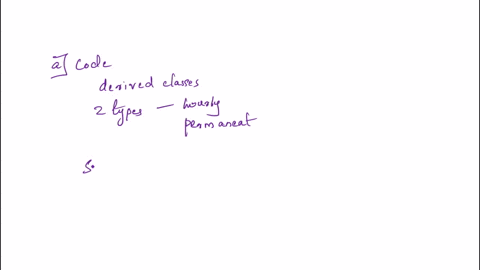 a] Code
derived classes
2 types — hourly
permanent
S